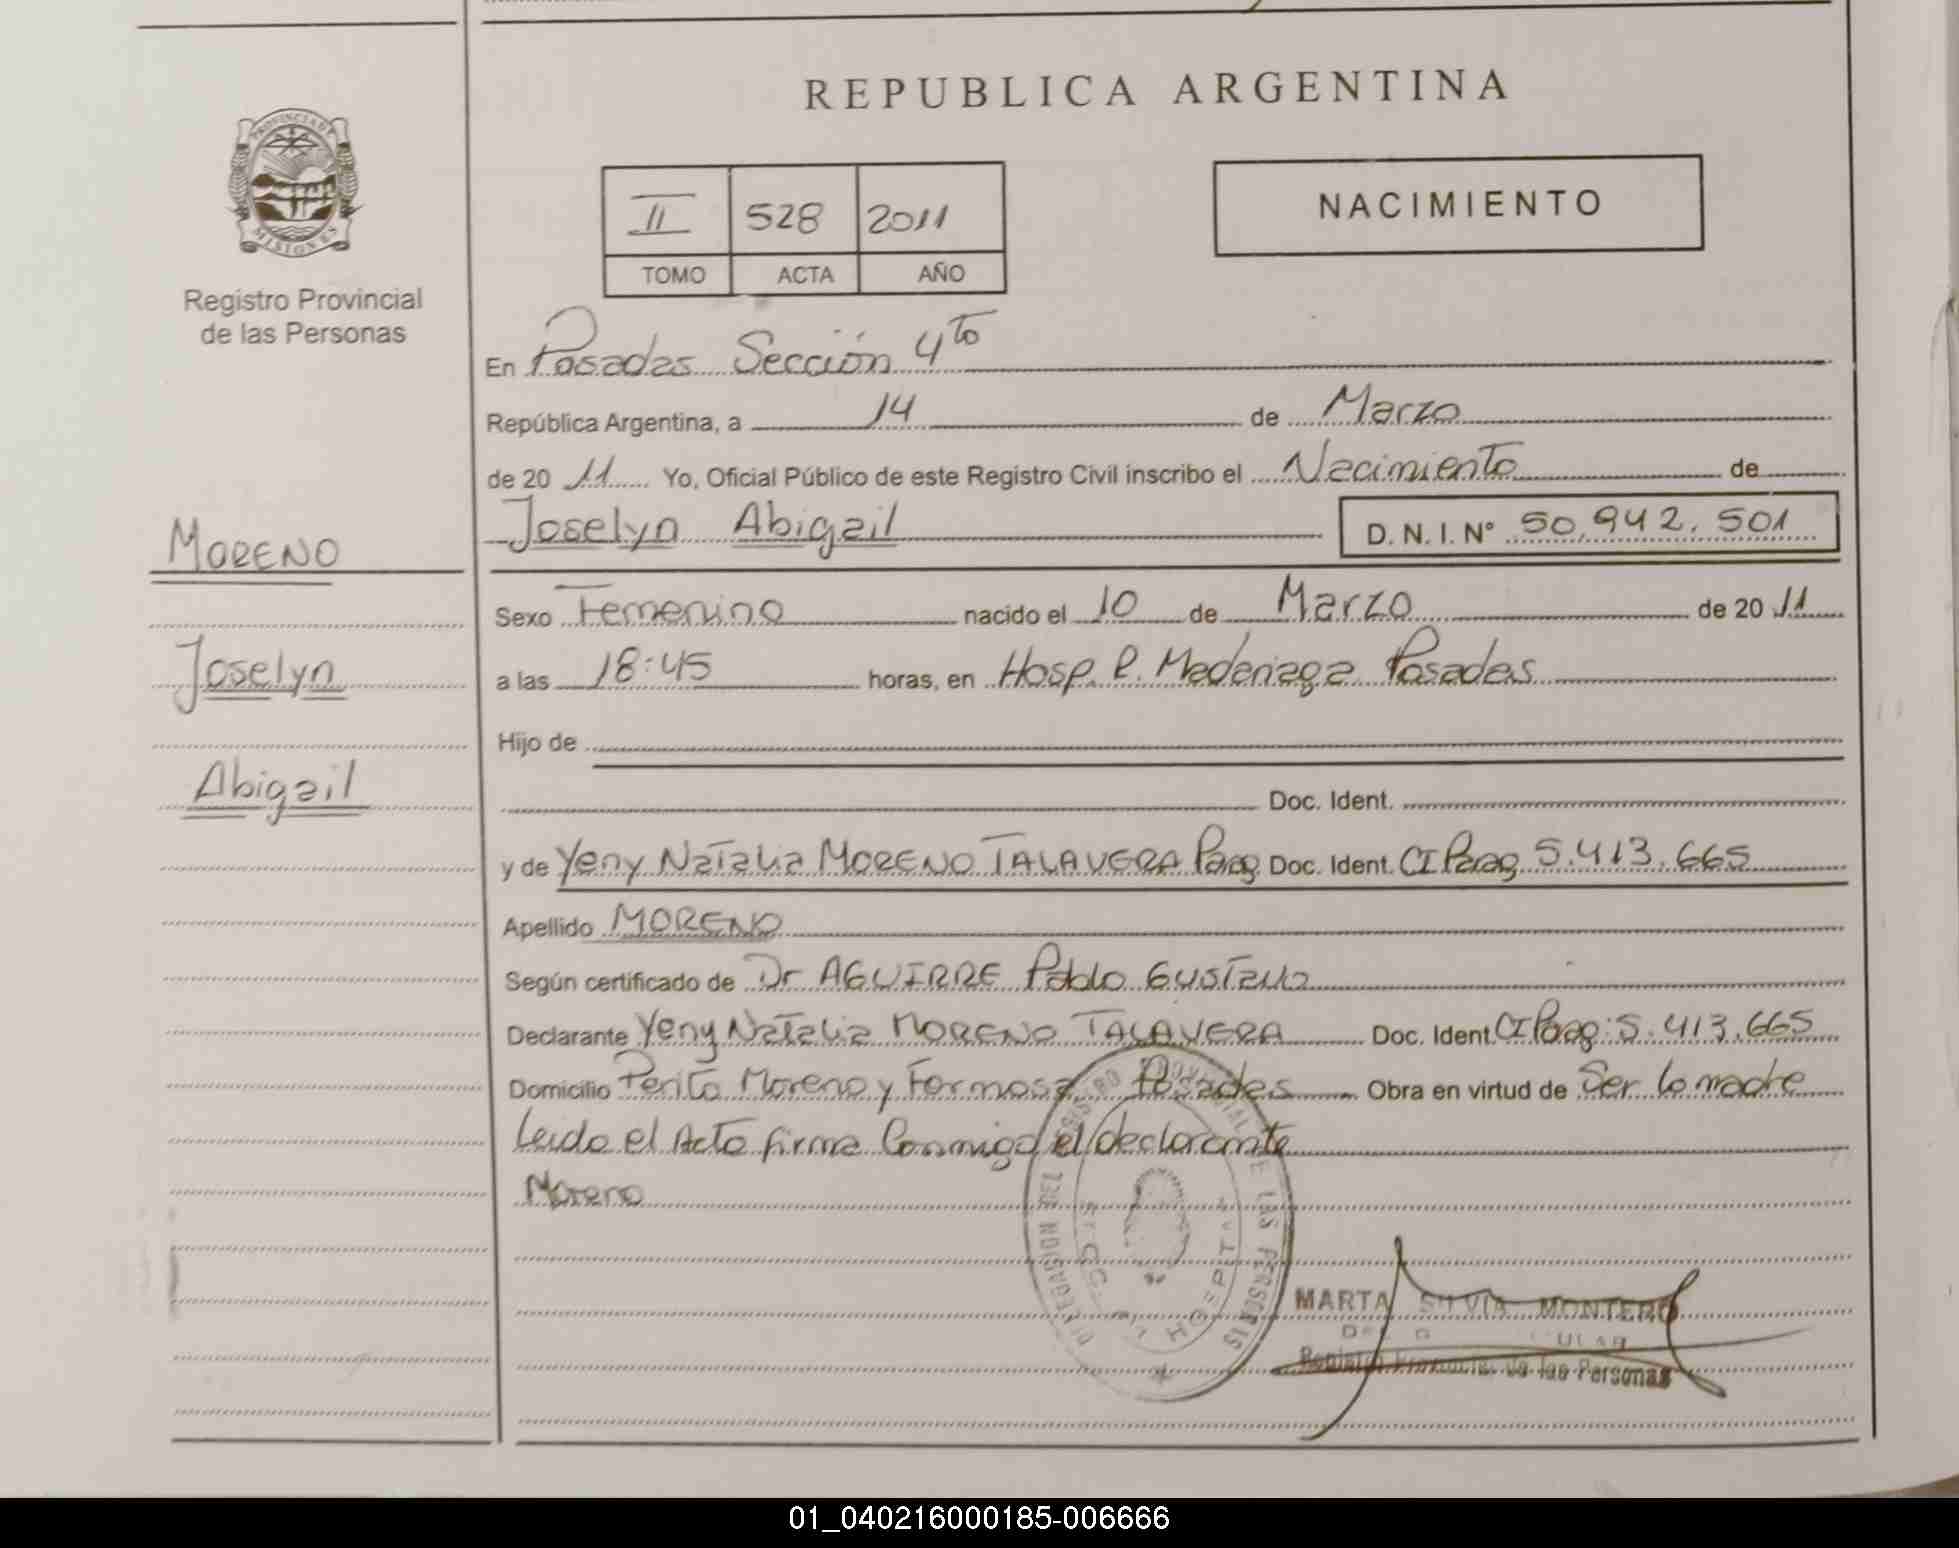 REPUBLICA ARGENTINA
PROVINCIA DE
MISIONES
Registro Provincial
de las Personas
II 528 2011
TOMO ACTA AÑO
NACIMIENTO
En Posadas Sección 4to
República Argentina, a 14 de Marzo
de 20 11 Yo, Oficial Público de este Registro Civil inscribo el Nacimiento de
Joselyn Abigail D. N. I. Nº 50,942.501
MORENO
Joselyn
Abigail
Sexo Femenino nacido el 10 de Marzo de 20 11
a las 18:45 horas, en Hosp. R. Madariaga Posadas
Hijo de
Doc. Ident.
y de Yeny Natalia MORENO TALAVERA Parag Doc. Ident. CI Parag 5.413.665
Apellido MORENO
Según certificado de Dr AGUIRRE Pablo Gustavo
Declarante Yeny Natalia MORENO TALAVERA Doc. Ident. CI Parag: 5.413.665
Domicilio Perito Moreno y Formosa Posadas Obra en virtud de Ser la madre
Leido el Acto firma Conmigo el declarante
Moreno
DELEGACION DEL REGISTRO PROVINCIAL DE LAS PERSONAS
MARTA SILVIA MONTERO
Registro Provincial de las Personas
01_040216000185-006666